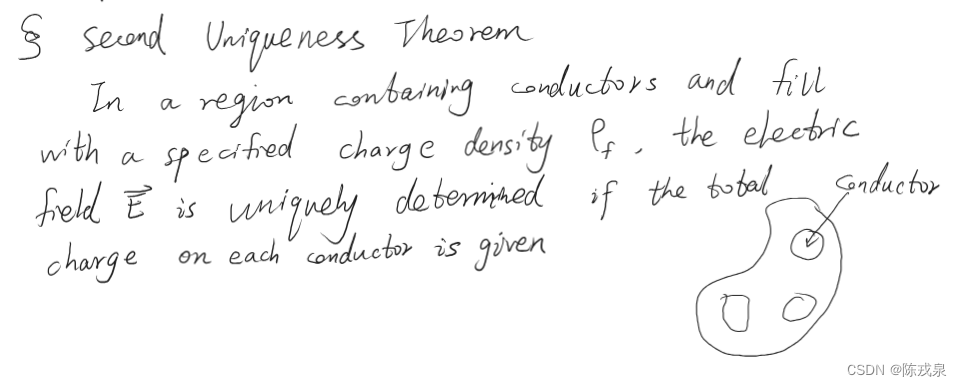 § Second Uniqueness Theorem
In a region containing conductors and fill
with a specified charge density ρf, the electric
field E⃗ is uniquely determined if the total
charge on each conductor is given
conductor
CSDN @陈戎泉